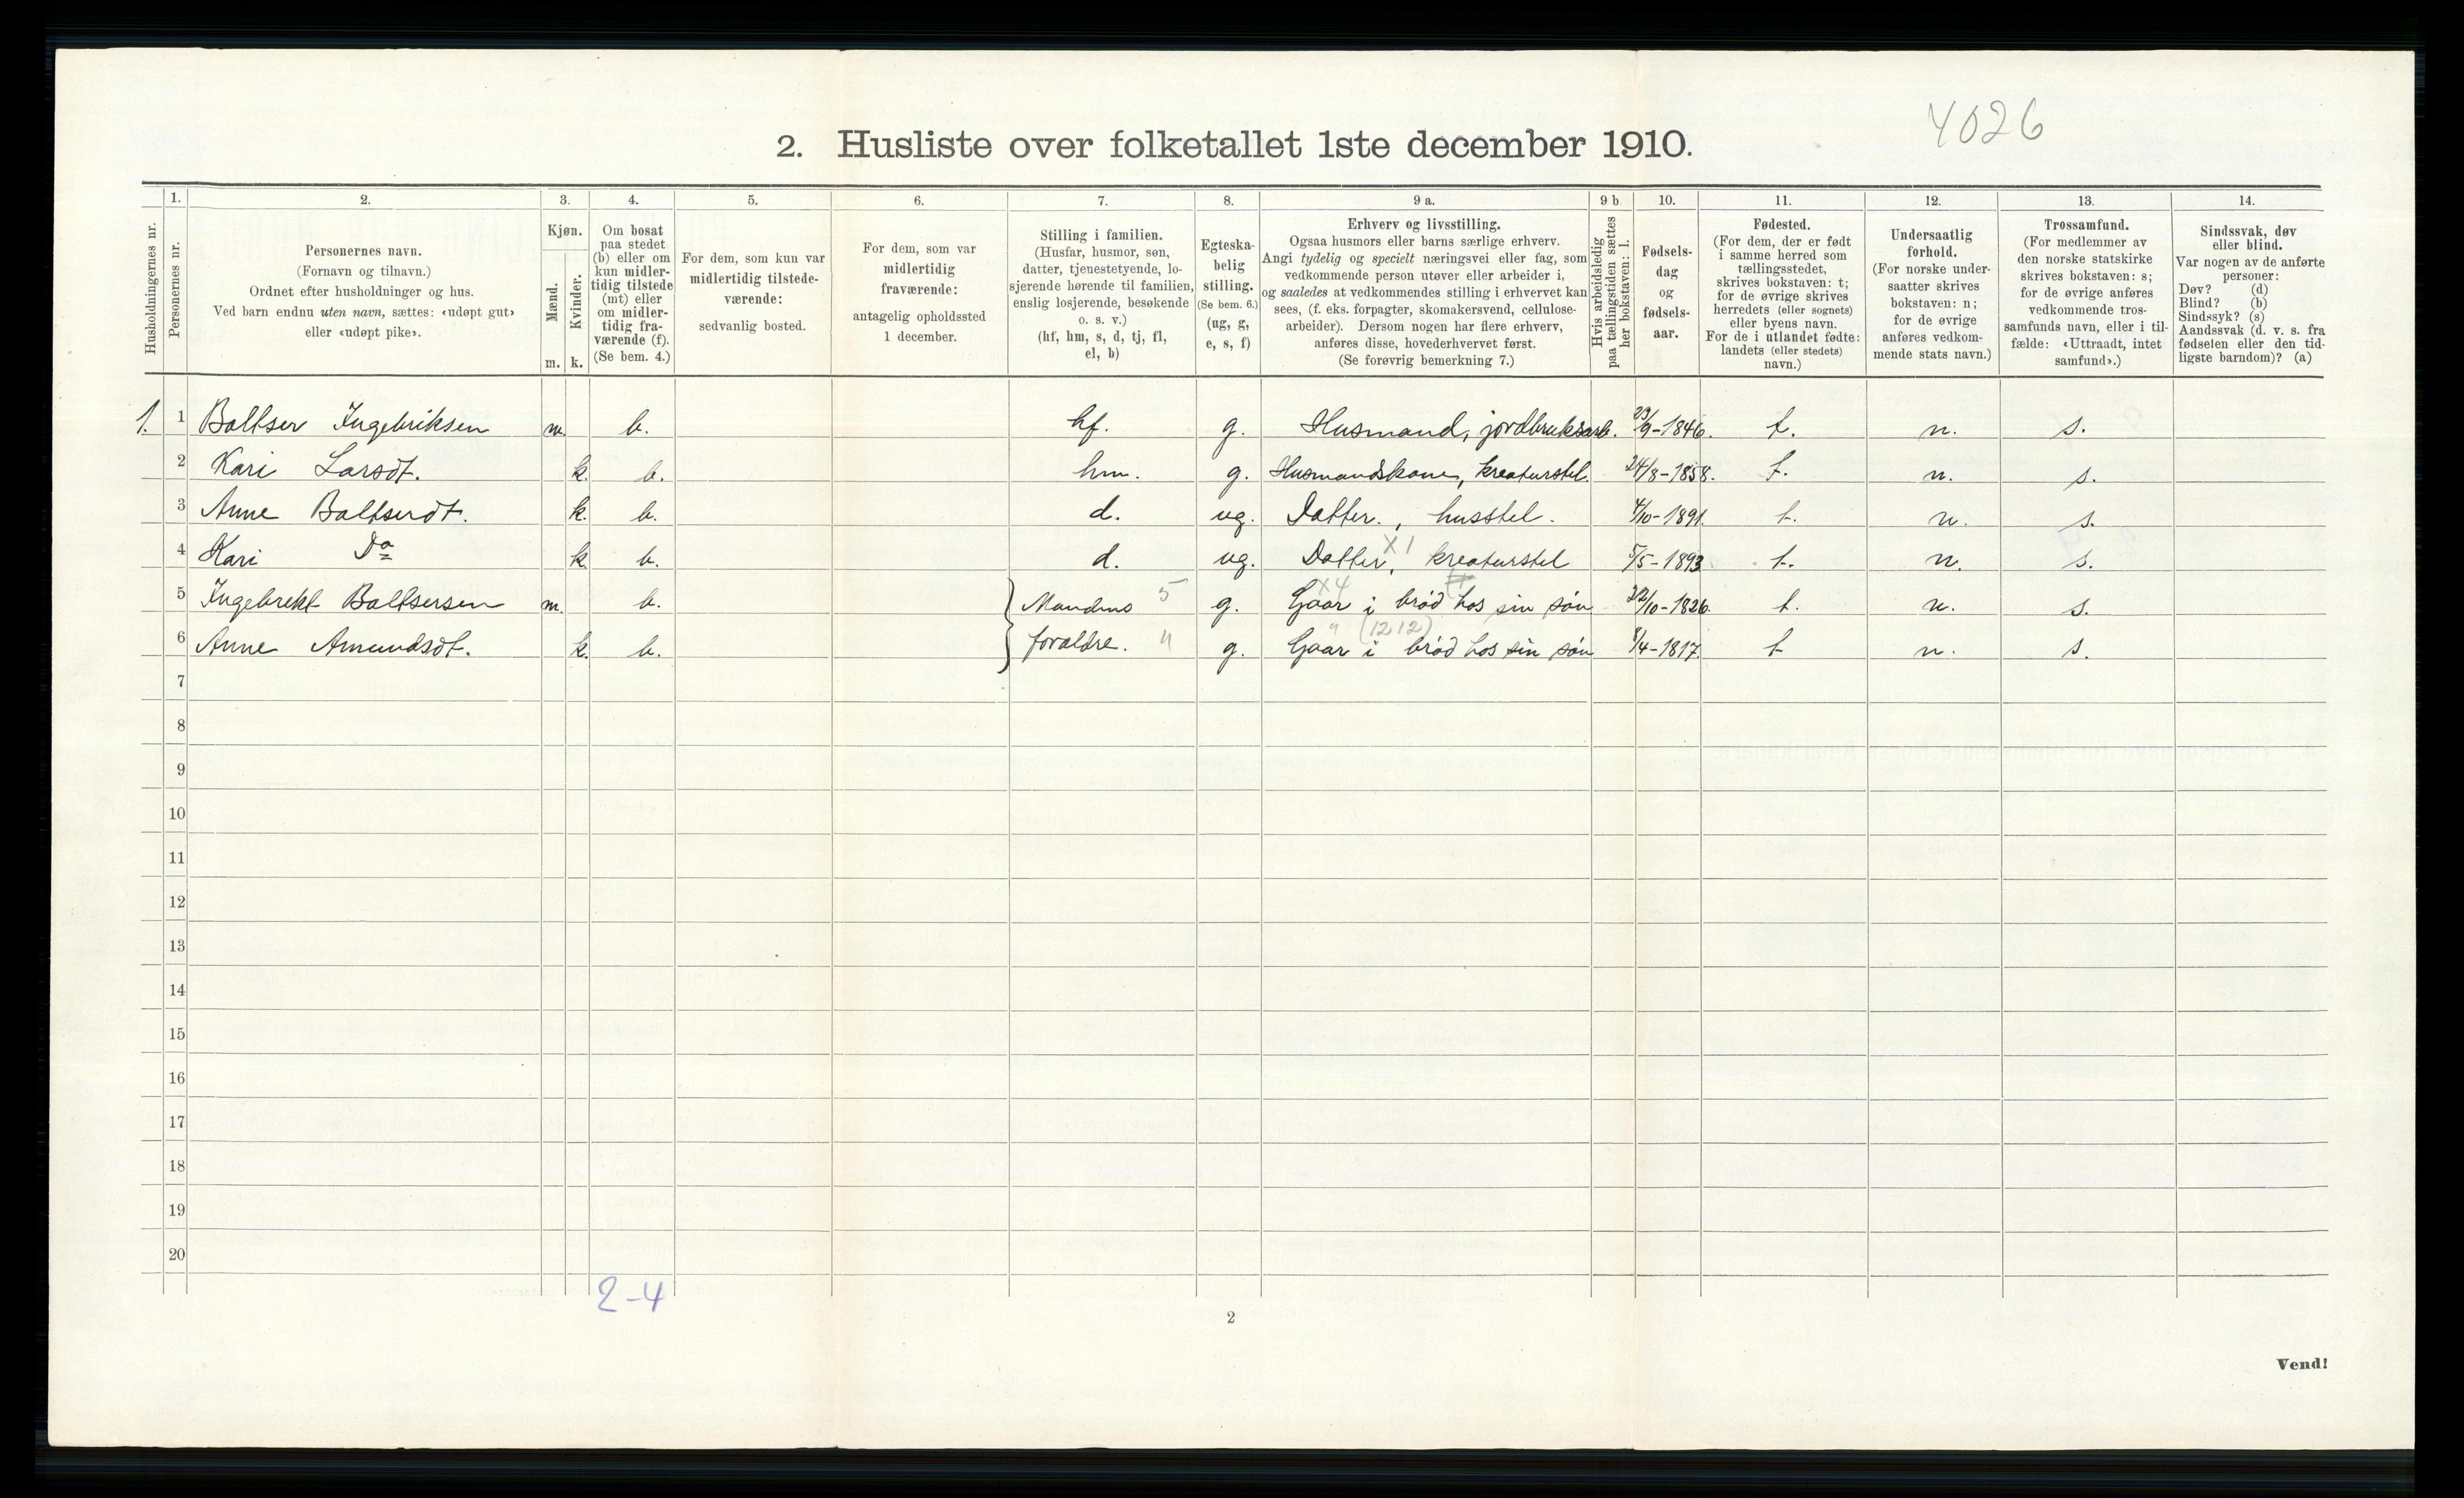 4026
2. Husliste over folketallet 1ste december 1910.
Husholdningernes nr.
1. Personernes nr.
2. Personernes navn.
(Fornavn og tilnavn.)
Ordnet efter husholdninger og hus.
Ved barn endnu uten navn, sættes: «udøpt gut»
eller «udøpt pike».
3. Kjøn.
Mænd. m.
Kvinder. k.
4. Om bosat
paa stedet
(b) eller om
kun midler-
tidig tilstede
(mt) eller
om midler-
tidig fra-
værende (f).
(Se bem. 4.)
5. For dem, som kun var
midlertidig tilstede-
værende:
sedvanlig bosted.
6. For dem, som var
midlertidig
fraværende:
antagelig opholdssted
1 december.
7. Stilling i familien.
(Husfar, husmor, søn,
datter, tjenestetyende, lo-
sjerende hørende til familien,
enslig losjerende, besøkende
o. s. v.)
(hf, hm, s, d, tj, fl,
el, b)
8. Egteska-
belig
stilling.
(Se bem. 6.)
(ug, g,
e, s, f)
9 a. Erhverv og livsstilling.
Ogsaa husmors eller barns særlige erhverv.
Angi tydelig og specielt næringsvei eller fag, som
vedkommende person utøver eller arbeider i,
og saaledes at vedkommendes stilling i erhvervet kan
sees, (f. eks. forpagter, skomakersvend, cellulose-
arbeider). Dersom nogen har flere erhverv,
anføres disse, hovederhvervet først.
(Se forøvrig bemerkning 7.)
9 b. Hvis arbeidsledig
paa tællingstiden sættes
her bokstaven: l.
10. Fødsels-
dag
og
fødsels-
aar.
11. Fødested.
(For dem, der er født
i samme herred som
tællingsstedet,
skrives bokstaven: t;
for de øvrige skrives
herredets (eller sognets)
eller byens navn.
For de i utlandet fødte:
landets (eller stedets)
navn.)
12. Undersaatlig
forhold.
(For norske under-
saatter skrives
bokstaven: n;
for de øvrige
anføres vedkom-
mende stats navn.)
13. Trossamfund.
(For medlemmer av
den norske statskirke
skrives bokstaven: s;
for de øvrige anføres
vedkommende tros-
samfunds navn, eller i til-
fælde: «Uttraadt, intet
samfund».)
14. Sindssvak, døv
eller blind.
Var nogen av de anførte
personer:
Døv? (d)
Blind? (b)
Sindssyk? (s)
Aandssvak (d. v. s. fra
fødselen eller den tid-
ligste barndom)? (a)
1. 1 Baltser Ingebriksen m. b. hf. g. Husmand, jordbruksarb. 23/9-1846. t. n. s.
2 Kari Larsdt. k. b. hm. g. Husmandskone, kreaturstel. 24/8-1858. t. n. s.
3 Anne Baltserdt. k. b. d. ug. Datter., husstel. 4/10-1891. t. n. s.
4 Kari Do k. b. d. ug. Datter, kreaturstel 5/5-1893 t. n. s.
X 1
5 Ingebrekt Baltsersen m. b. Mandens 5 g. Gaar i brød hos sin søn 22/10-1826. t. n. s.
X 4
6 Anne Amundsdt. k. b. foraldre. " g. Gaar i brød hos sin søn 8/4-1817. t n. s.
" (1212)
7
8
9
10
11
12
13
14
15
16
17
18
19
20
2-4
2
Vend!